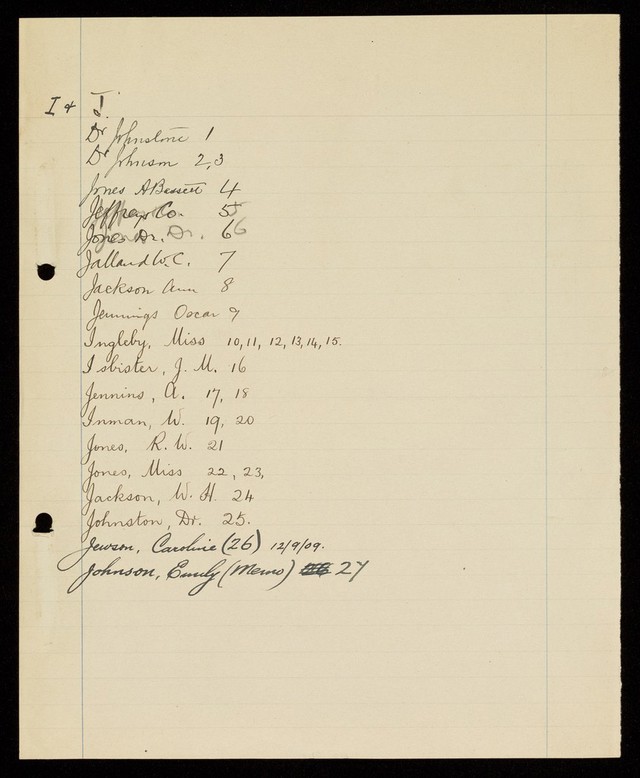 I & J.
Dr Johnstone 1
Dr Johnson 2,3
Jones A Bassett 4
Jeffreys Co. 5
Jones Dr. 6
Jalland W.C. 7
Jackson Ann 8
Jennings Oscar 9
Ingleby, Miss 10,11, 12,13,14,15.
Isbister, J. M. 16
Jennins, A. 17, 18
Inman, W. 19, 20
Jones, R. W. 21
Jones, Miss 22, 23,
Jackson, W. H. 24
Johnston, Dr. 25.
Jewson, Caroline (26) 12/9/09.
Johnson, Emily (Memo) 27